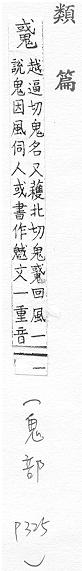 類篇
䰥
越逼切鬼名又穫北切鬼䰥回風一
說鬼因風伺人或書作魊文一重音
一
（鬼部 P325）